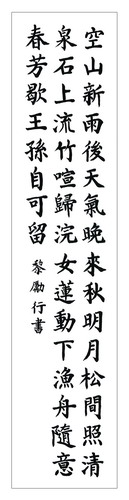 空山新雨後天氣晚來秋明月松間照清
泉石上流竹喧歸浣女蓮動下漁舟隨意
春芳歇王孫自可留 黎勵行書